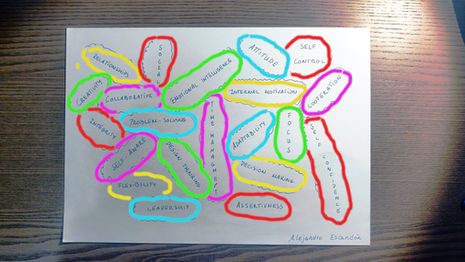 RELATIONSHIPS
SOCIAL
ATTITUDE
SELF
CONTROL
CREATIVITY
COLLABORATIVE
EMOTIONAL INTELLIGENCE
INTERNAL MOTIVATION
COOPERATION
INTEGRITY
PROBLEM-SOLVING
TIME MANAGMENT
ADAPTABILITY
FOCUS
SELF CONFIDENCE
SELF AWARE
DESIGN THINKING
DECISION MAKING
FLEXIBILITY
LEADERSHIP
ASSERTIVNESS
Alejandro Escandón